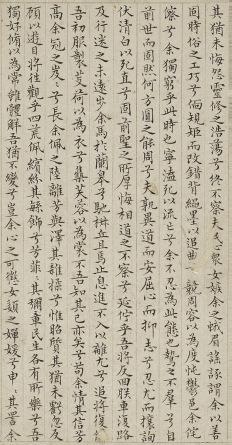 其猶未悔怨靈脩之浩蕩兮終不察夫人心衆女嫉余之蛾眉謠諑謂余以善
固時俗之工巧兮偭規矩而改錯背繩墨以追曲兮競周容以為度忳鬱邑余侘
傺兮余獨窮乎此時也寧溘死以流亡兮余不忍為此態也鷙之不羣兮自
前世而固然何方圓之能周兮夫孰異道而安屈心而抑志兮忍尤而攘詢
伏清白以死直兮固前聖之所厚悔相道之不察兮延佇乎吾將反回朕車復路
及行迷之未遠步余馬於蘭皋兮馳椒丘且焉止息進不入以離尤兮退將復
吾初服製芰荷以為衣兮集芙蓉以為裳不吾知其已亦矣兮苟余情其信芳
高余冠之岌岌兮長余佩之陸離芳與澤其雜糅兮惟昭質其猶未虧忽反
顧以遊目兮將往觀乎四荒佩繽紛其繁飾兮芳菲菲其彌章民生各有所樂兮吾
獨好脩以為常雖體解吾猶不變兮豈余心之可懲女嬃之嬋媛兮申申其詈余